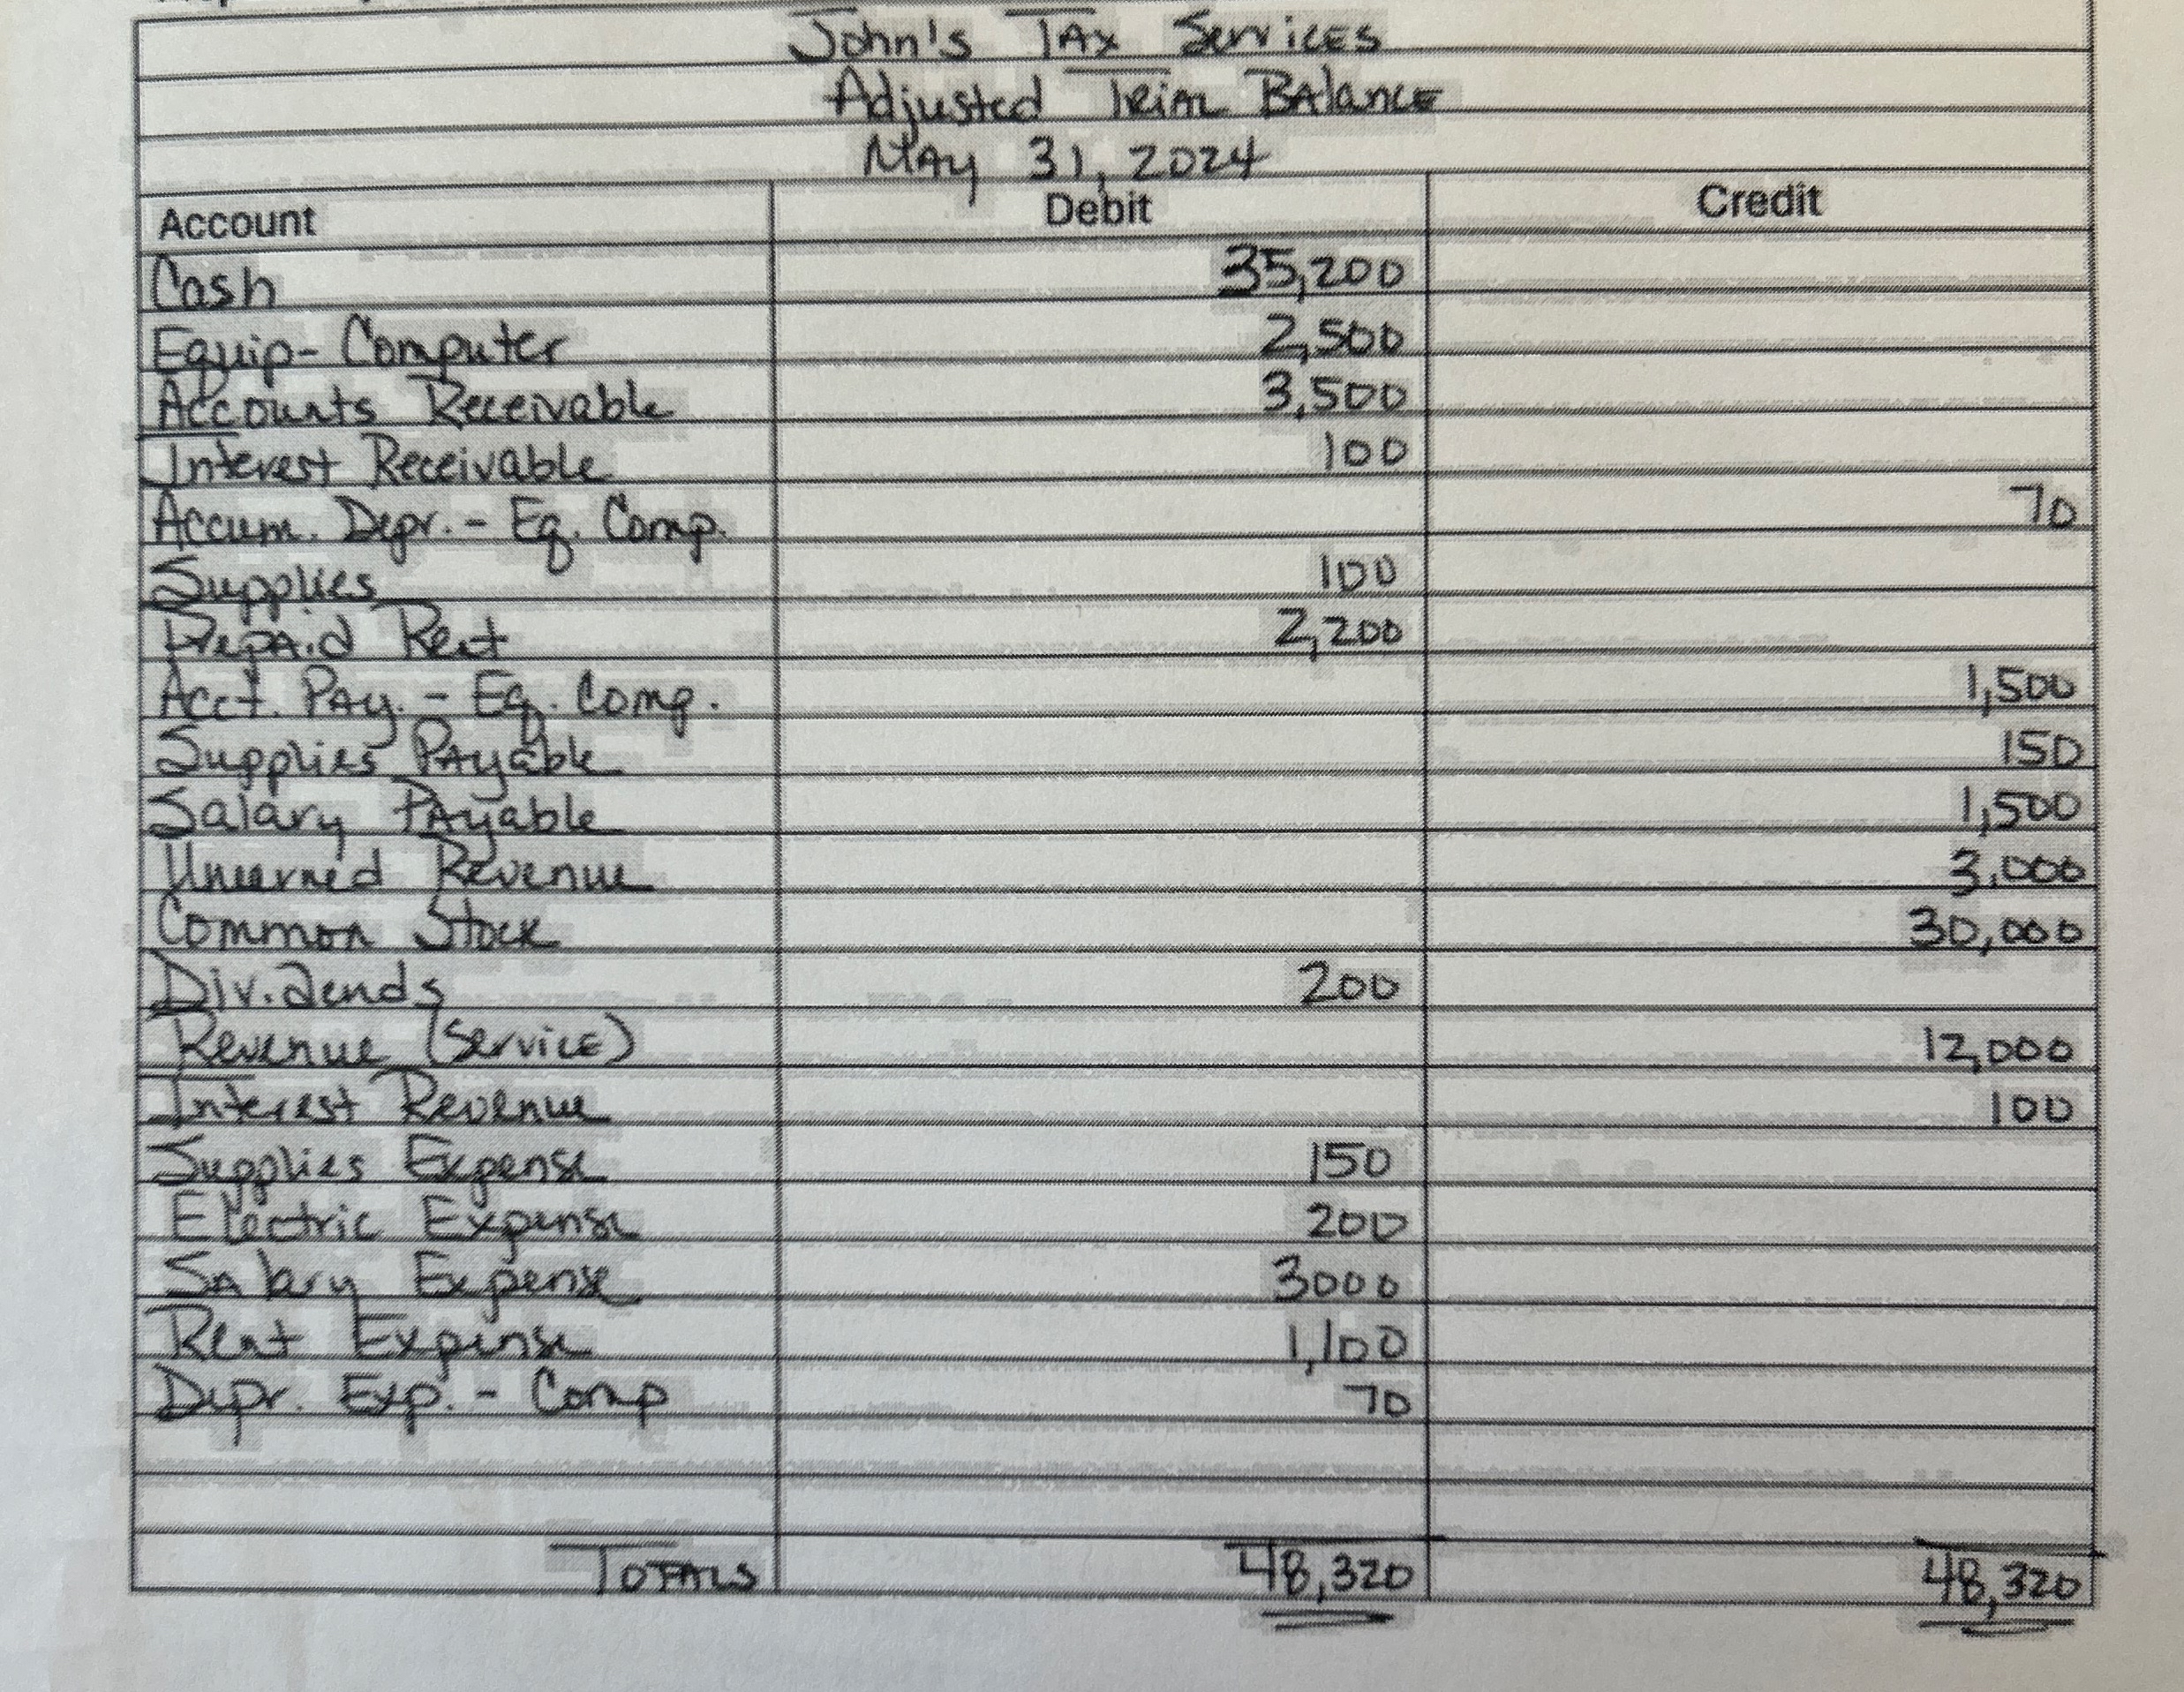 John's Tax Services
Adjusted Trial Balance
May 31, 2024
Account Debit Credit
Cash 35,200
Equip- Computer 2,500
Accounts Receivable 3,500
Interest Receivable 100
Accum. Depr. - Eq. Comp. 70
Supplies 100
Prepaid Rent 2,200
Acct. Pay. - Eq. Comp. 1,500
Supplies Payable 150
Salary Payable 1,500
Unearned Revenue 3,000
Common Stock 30,000
Dividends 200
Revenue (Service) 12,000
Interest Revenue 100
Supplies Expense 150
Electric Expense 200
Salary Expense 3000
Rent Expense 1,100
Depr. Exp. - Comp 70
Totals 48,320 48,320